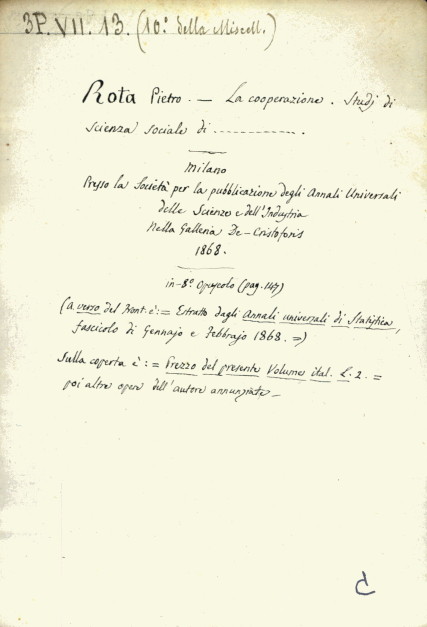 3P. VII. 13. (10.° della Miscell.)
Rota Pietro. — La cooperazione. Studj di
scienza sociale di ..............
Milano
Presso la Società per la pubblicazione degli Annali Universali
delle Scienze e dell'Industria
Nella Galleria De-Cristoforis
1868.
in-8.° Opuscolo (pag. 147)
(a verso del Front. è: = Estratto dagli Annali universali di Statistica,
fascicolo di Gennajo e Febbrajo 1868. =)
Sulla coperta è: = Prezzo del presente Volume ital. L. 2. =
poi altre opere dell'autore annunziate —